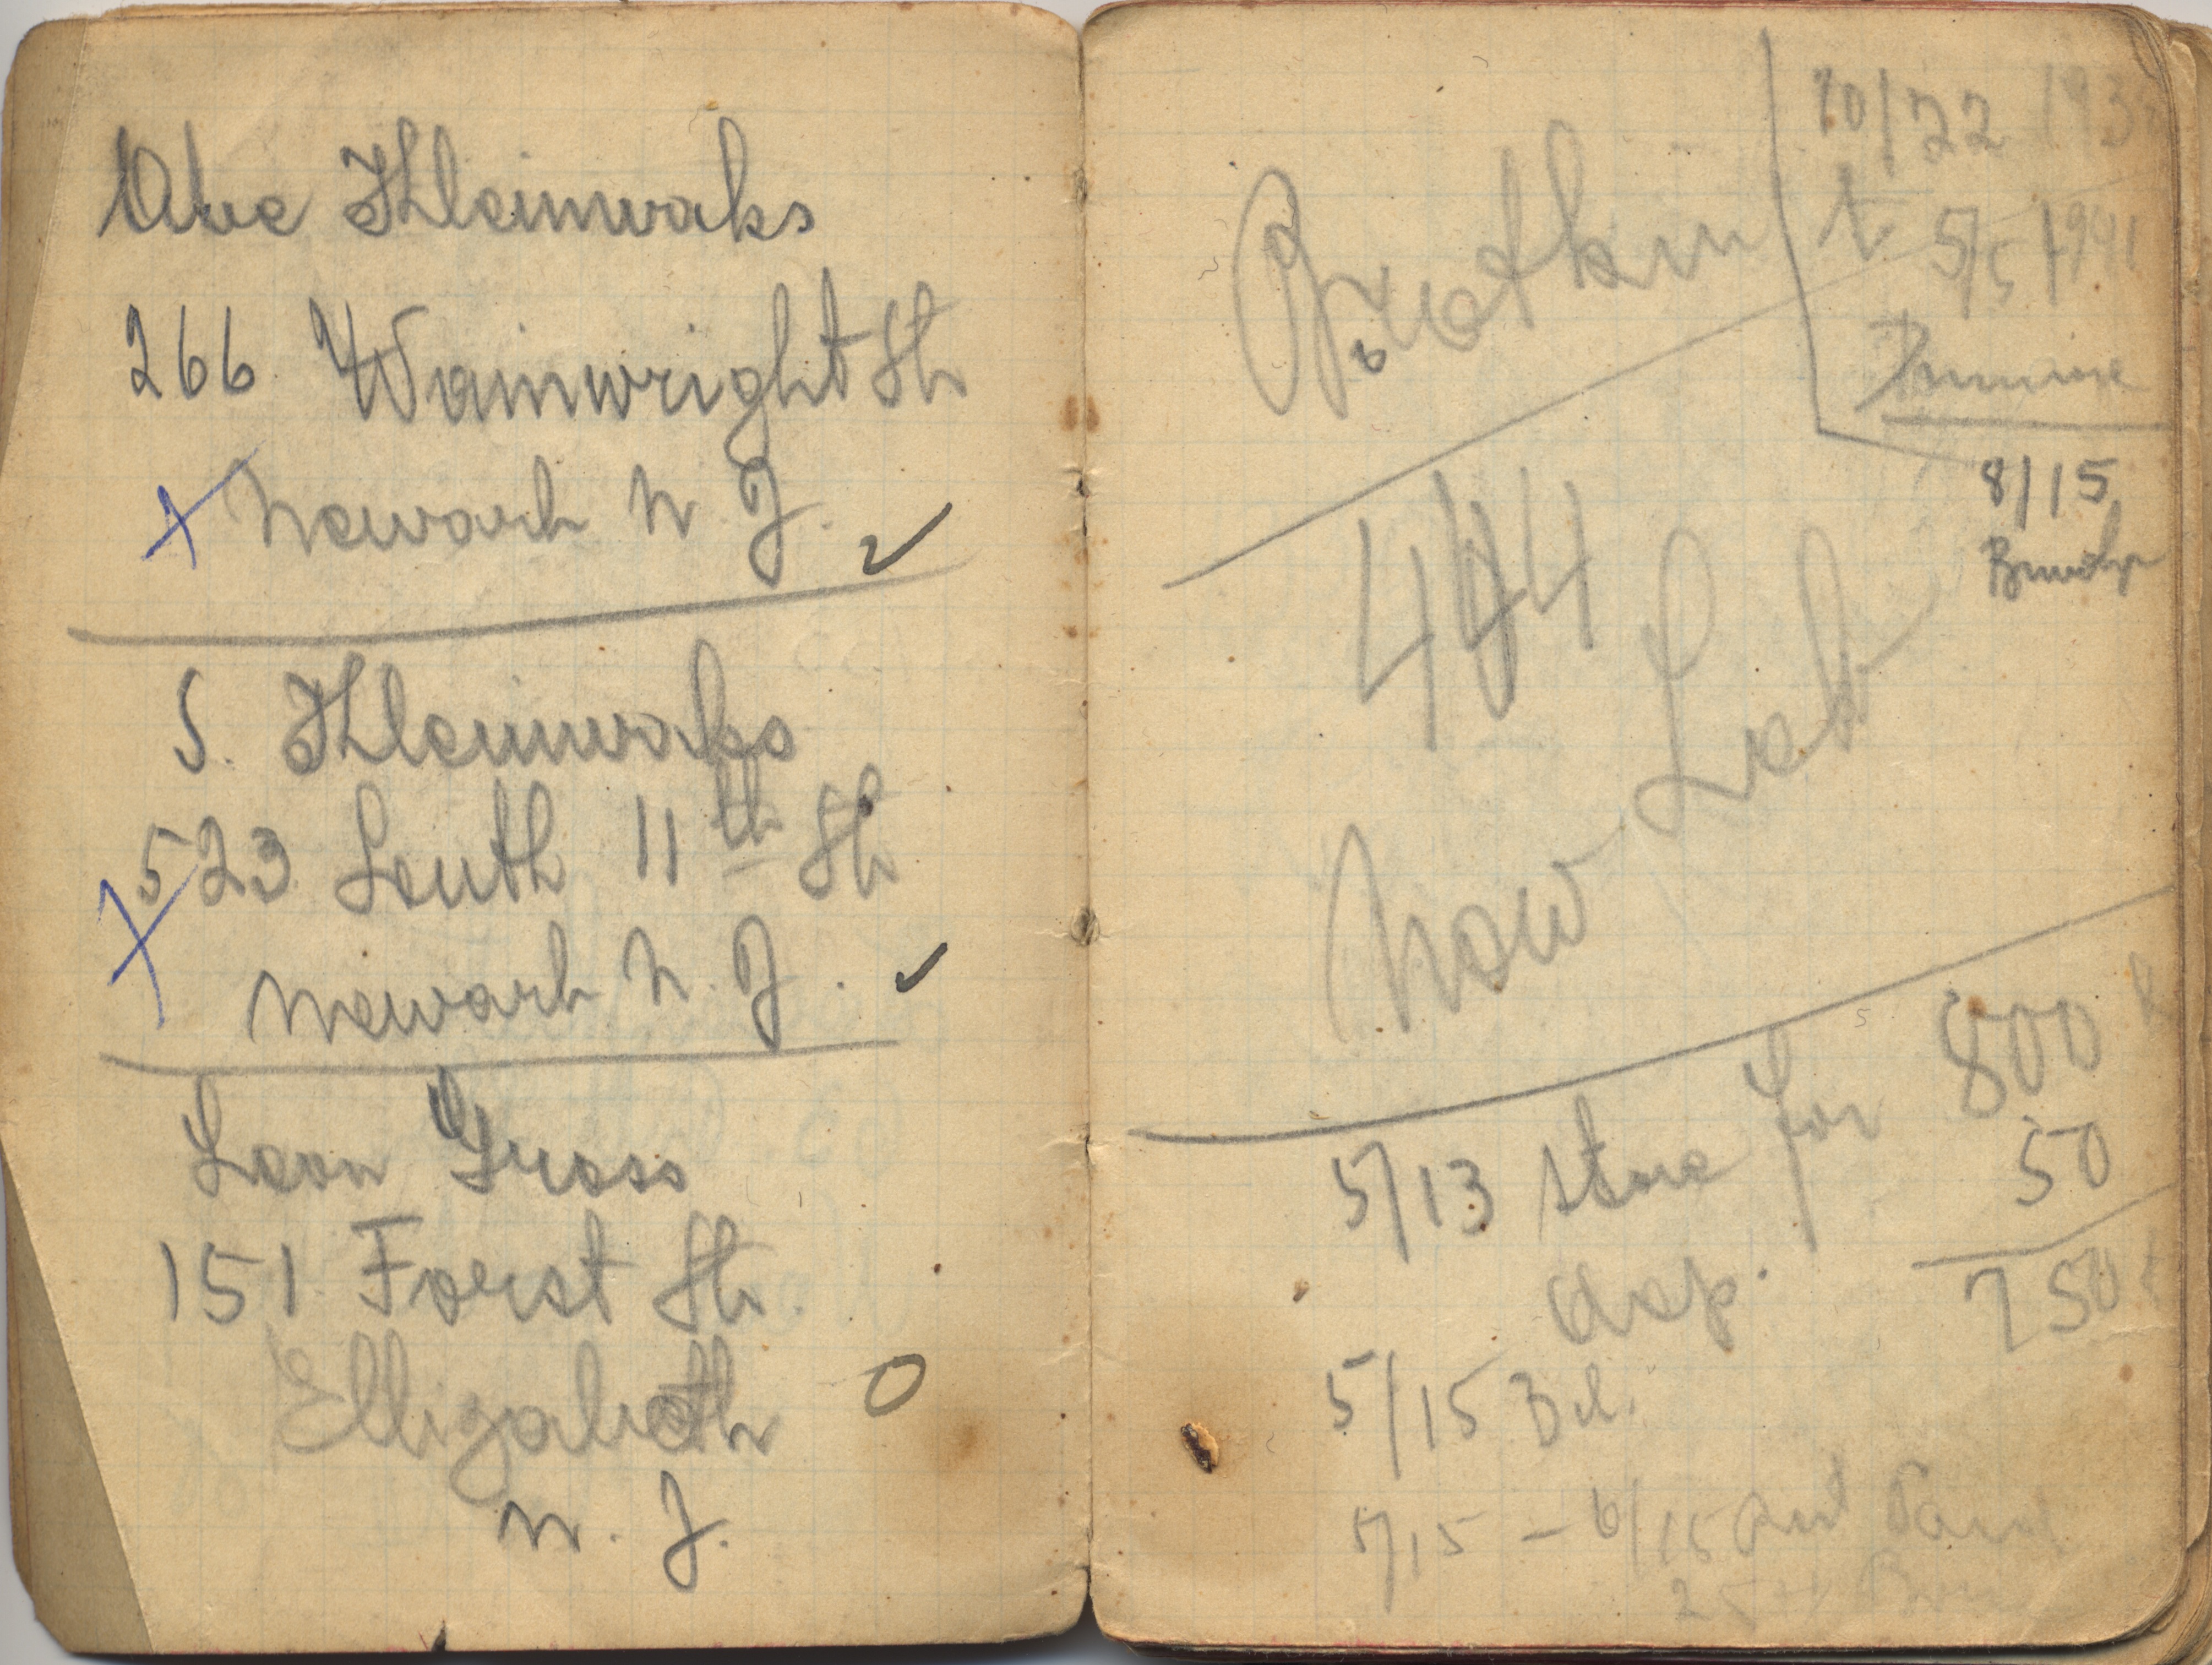 Abe Kleinwaks
266 Wainwright St
Newark N. J.
S. Kleinwaks
523 South 11th St
Newark N. J.
Leon Gross
151 Forest St.
Ellizabeth
N. J.
10/22 193
t 5/5 1941
8/15
444
Now Lot
5/13 Store for 800
50
dep. 750
5/15 Bel.
5/15 – 6/15 Rent Paid